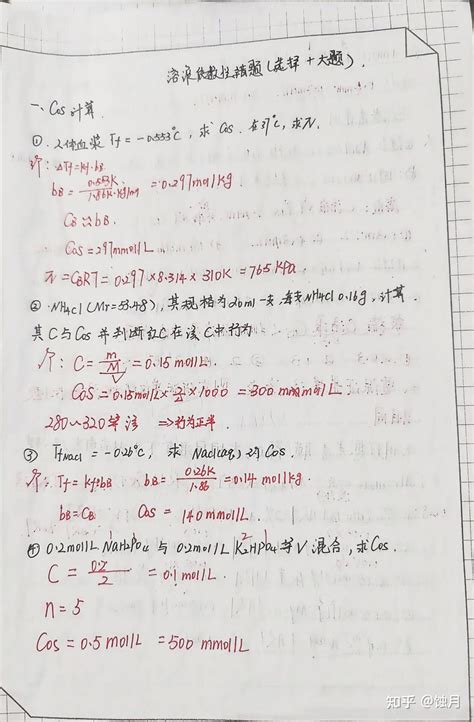 溶液依数性精题(选择+大题).
一、Cos计算.
① 人体血浆 Tf = -0.553°C, 求 Cos. 在37°C, 求π.
解: ΔTf=Kf·bB
bB = 0.553K / 1.86K·kg/mol = 0.297mol/kg
CB≈bB.
Cos=297mmol/L
π=CBRT=0.297×8.314×310K=765KPa
② NH4Cl (Mr=53.48), 其规格为20ml一支, 每支NH4Cl 0.16g, 计算
其C与Cos并判断红C在该C中行为
解: C= m/M / V =0.15mol/L
Cos=0.15mol/L×2×1000=300mmol/L
280~320等渗 ⇒行为正常
③ TfNaCl = -0.26°C, 求 NaCl(aq)的Cos.
解: Tf=Kf·bB bB= 0.26K / 1.86 =0.14mol/kg
bB=CB Cos=140mmol/L
④ 0.2mol/L NaH2PO4 与 0.2mol/L K2HPO4等V混合, 求Cos
C = 0.2 / 2 =0.1mol/L
n=5
Cos=0.5mol/L =500mmol/L
知乎 @蚀月